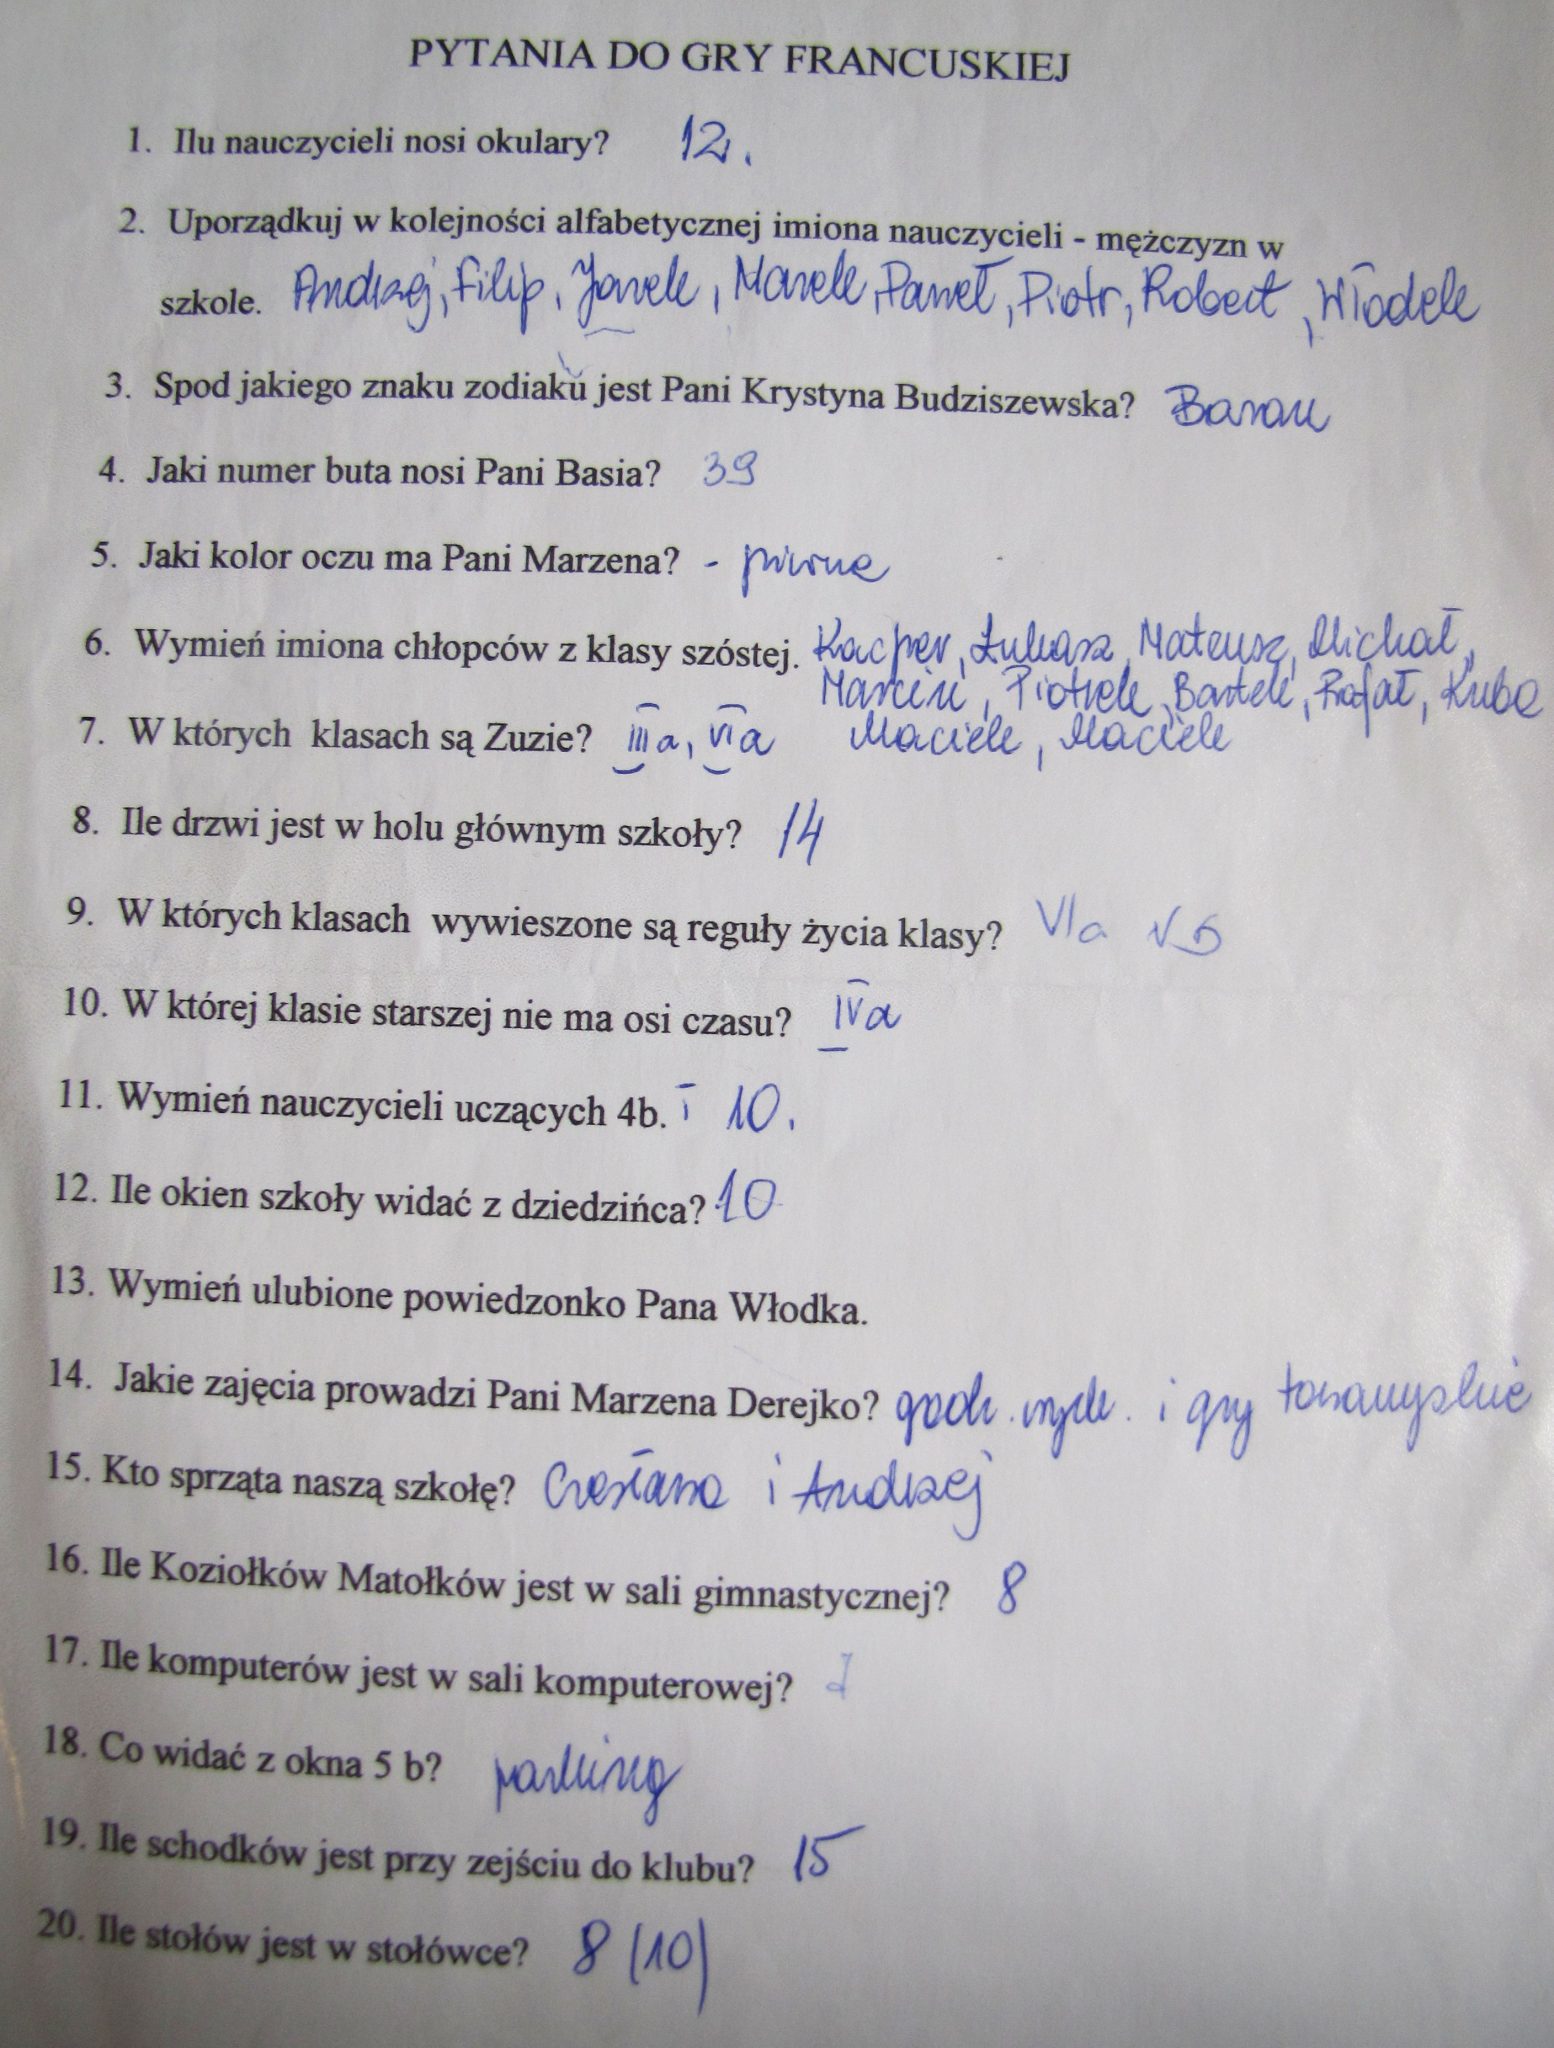 PYTANIA DO GRY FRANCUSKIEJ
1. Ilu nauczycieli nosi okulary? 12.
2. Uporządkuj w kolejności alfabetycznej imiona nauczycieli - mężczyzn w
szkole. Andrzej, Filip, Jarek, Marek, Paweł, Piotr, Robert, Włodek
3. Spod jakiego znaku zodiaku jest Pani Krystyna Budziszewska? Baran
4. Jaki numer buta nosi Pani Basia? 39
5. Jaki kolor oczu ma Pani Marzena? - piwne
6. Wymień imiona chłopców z klasy szóstej. Kacper, Łukasz, Mateusz, Michał,
Marcin, Piotrek, Bartek, Rafał, Kuba
7. W których klasach są Zuzie? IIIa, VIa Maciek, Maciek
8. Ile drzwi jest w holu głównym szkoły? 14
9. W których klasach wywieszone są reguły życia klasy? VIa Vb
10. W której klasie starszej nie ma osi czasu? IVa
11. Wymień nauczycieli uczących 4b. 10.
12. Ile okien szkoły widać z dziedzińca? 10
13. Wymień ulubione powiedzonko Pana Włodka.
14. Jakie zajęcia prowadzi Pani Marzena Derejko? godz. wych. i gry towarzyskie
15. Kto sprząta naszą szkołę? Czesława i Andrzej
16. Ile Koziołków Matołków jest w sali gimnastycznej? 8
17. Ile komputerów jest w sali komputerowej?
18. Co widać z okna 5 b? parking
19. Ile schodków jest przy zejściu do klubu? 15
20. Ile stołów jest w stołówce? 8 (10)